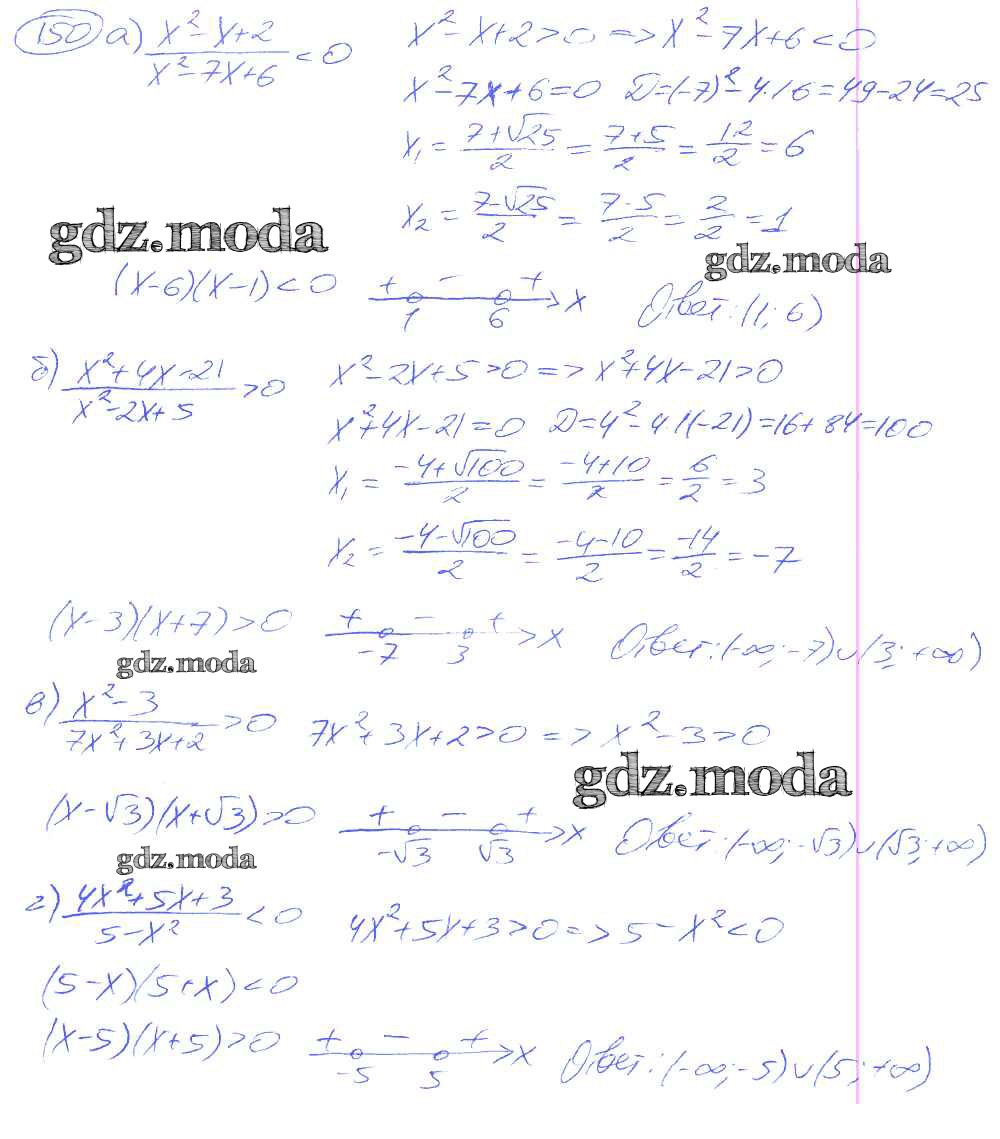 150 а) (x²-x+2)/(x²-7x+6) < 0   x²-x+2>0 => x²-7x+6<0
x²-7x+6=0   Д=(-7)²-4·1·6=49-24=25
x₁ = (7+√25)/2 = (7+5)/2 = 12/2 = 6
x₂ = (7-√25)/2 = (7-5)/2 = 2/2 = 1
gdz.moda
gdz.moda
(x-6)(x-1)<0   + - + 1 6 x   Ответ: (1; 6)
б) (x²+4x-21)/(x²-2x+5) > 0   x²-2x+5>0 => x²+4x-21>0
x²+4x-21=0   Д=4²-4·1(-21)=16+84=100
x₁ = (-4+√100)/2 = (-4+10)/2 = 6/2 = 3
x₂ = (-4-√100)/2 = (-4-10)/2 = -14/2 = -7
(x-3)(x+7)>0   + - + -7 3 x   Ответ: (-∞; -7)∪(3; +∞)
gdz.moda
в) (x²-3)/(7x²+3x+2) > 0   7x²+3x+2>0 => x²-3>0
gdz.moda
(x-√3)(x+√3)>0   + - + -√3 √3 x   Ответ: (-∞; -√3)∪(√3; +∞)
gdz.moda
г) (4x²+5x+3)/(5-x²) < 0   4x²+5x+3>0 => 5-x²<0
(5-x)(5+x)<0
(x-5)(x+5)>0   + - + -5 5 x   Ответ: (-∞; -5)∪(5; +∞)